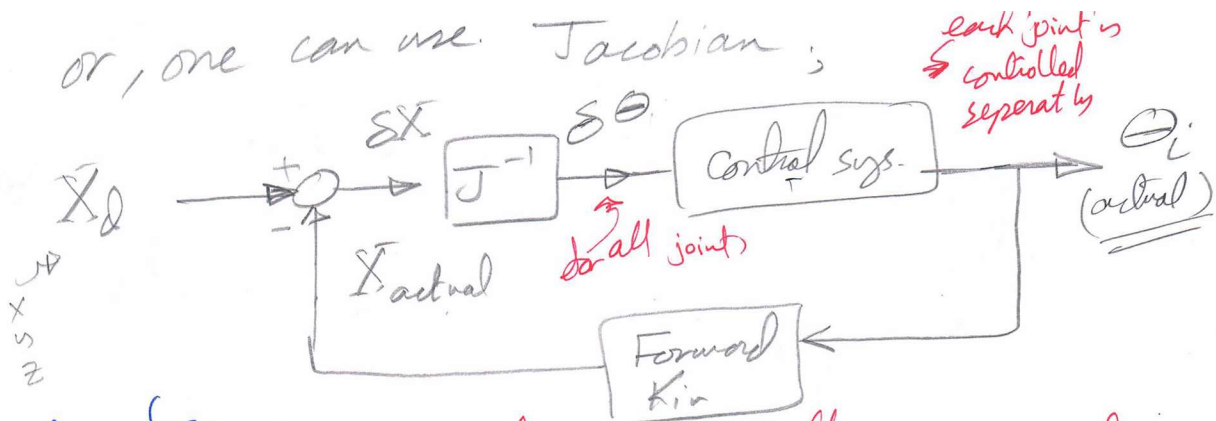 or, one can use Jacobian;
each joint is
controlled
seperatly
δX
δθ
X_d
+
-
J⁻¹
control sys.
θi
(actual)
for all joints
X actual
x
y
z
Forward
Kin